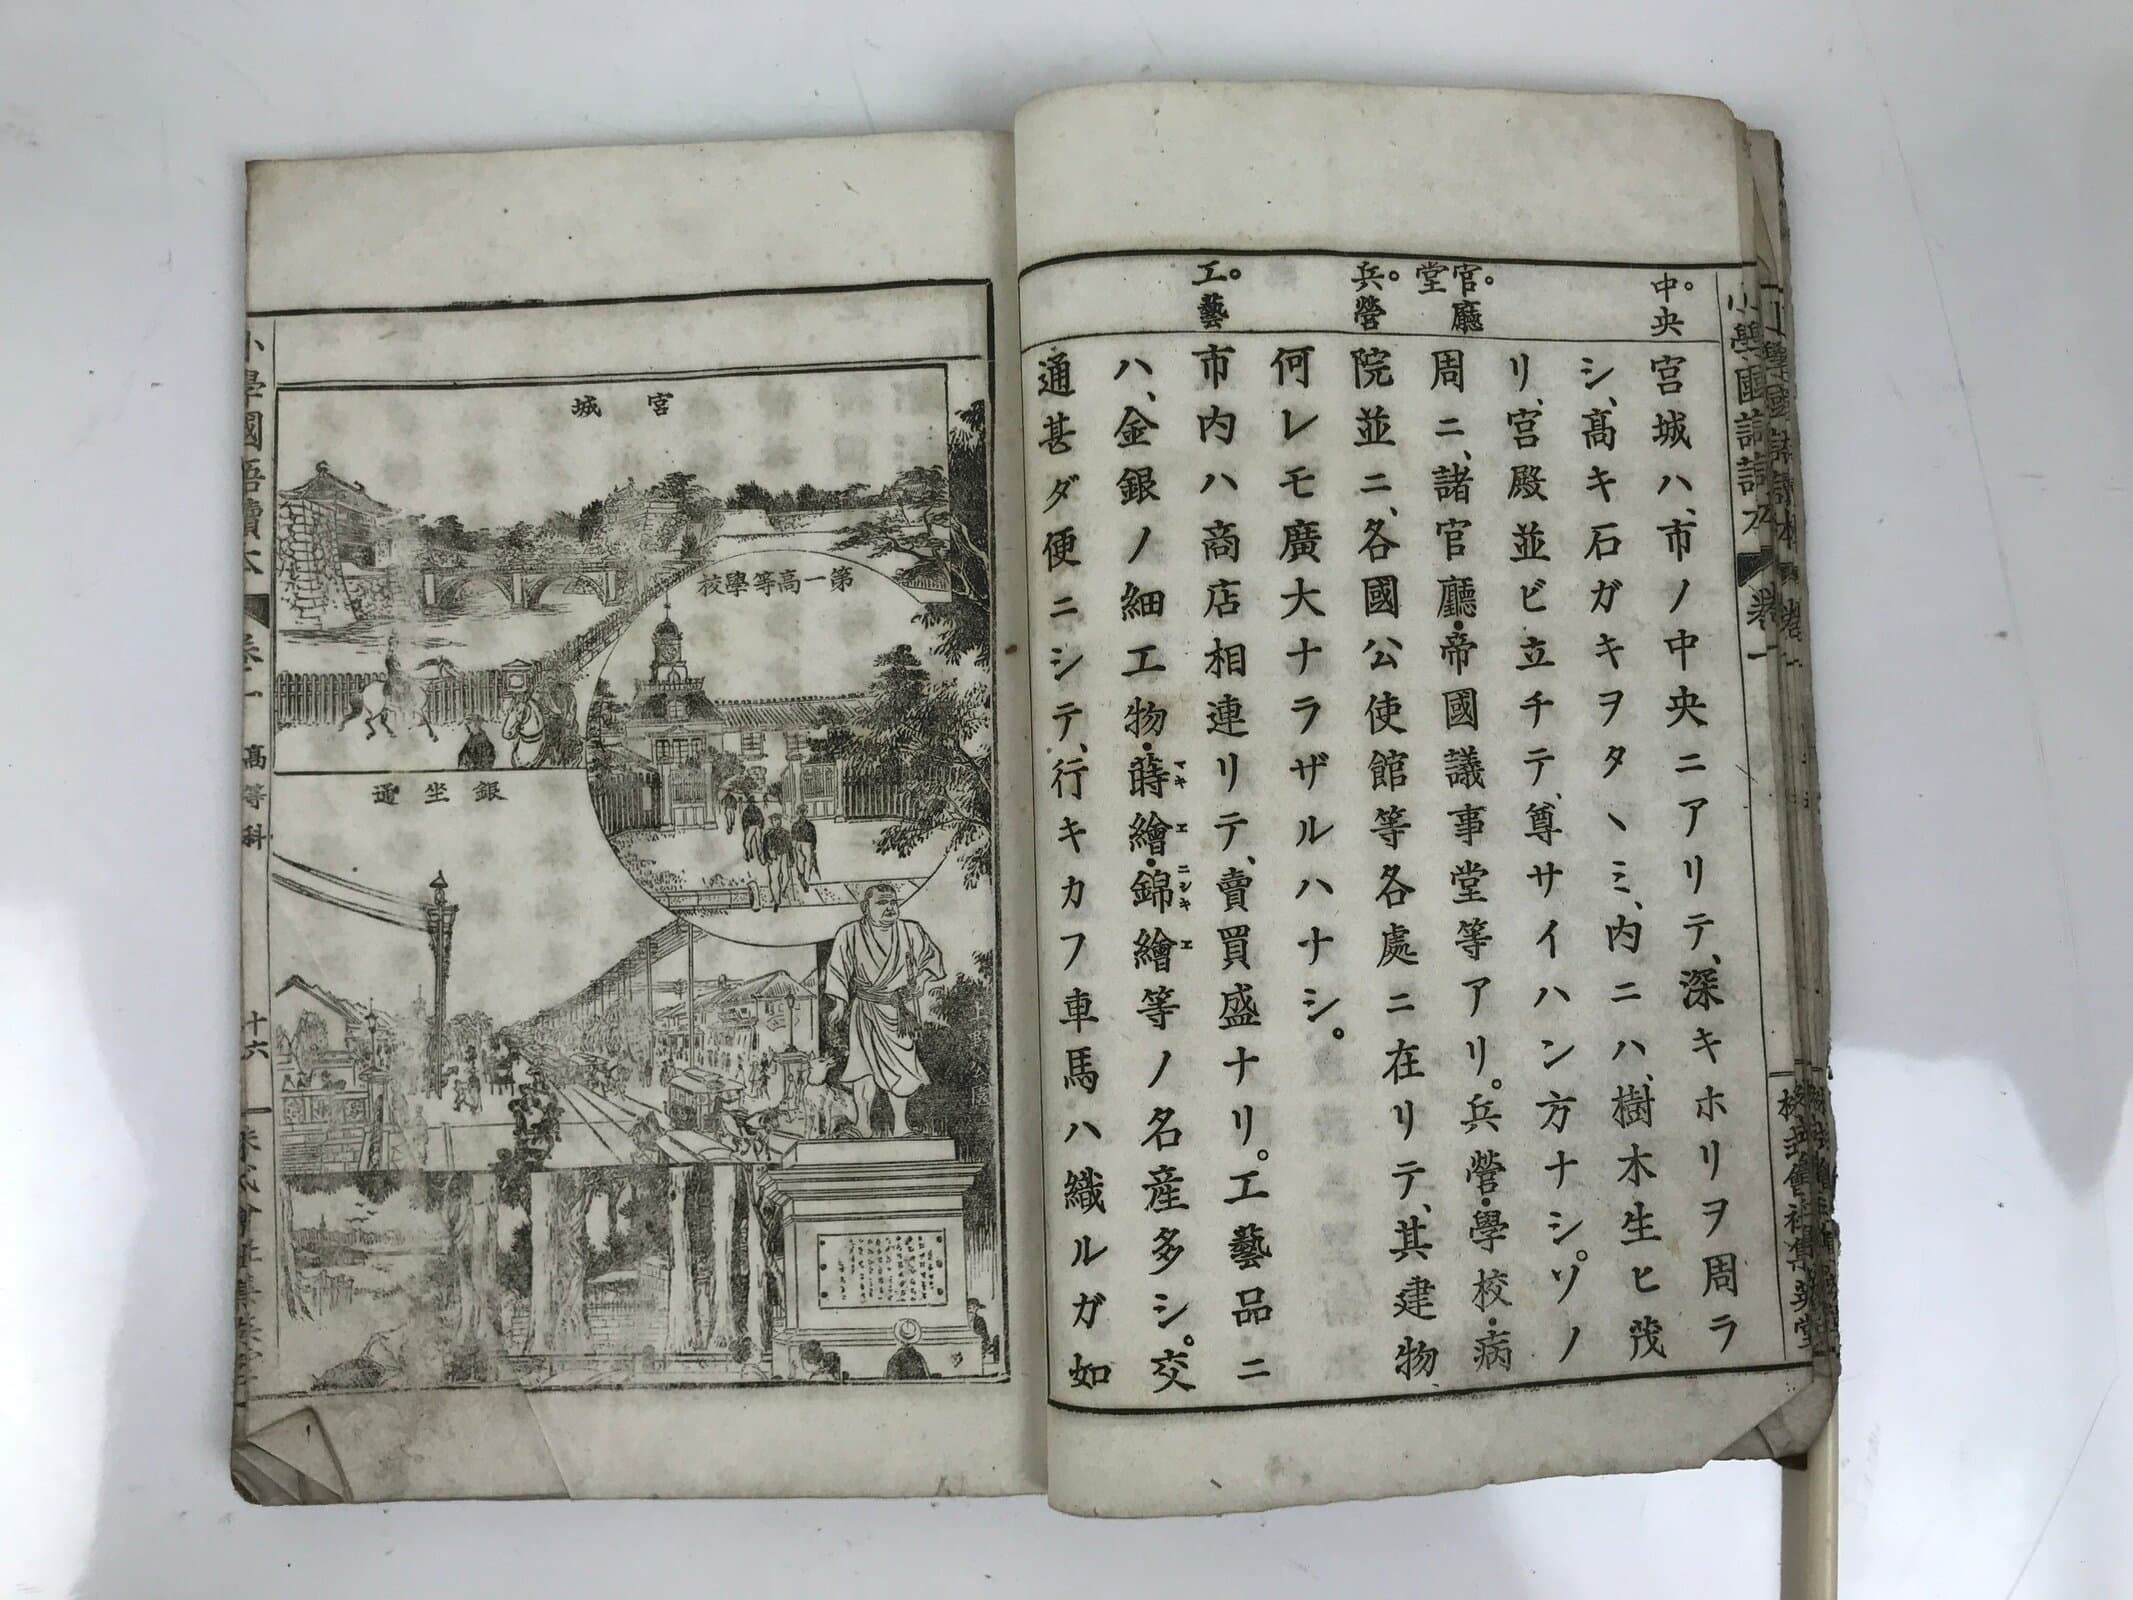 小學國語讀本
卷一
中央
官廳
堂
兵營
工藝
宮城ハ、市ノ中央ニアリテ、深キホリヲ周ラ
シ、高キ石ガキヲタヽミ、内ニハ、樹木生ヒ茂
リ、宮殿並ビ立チテ、尊サイハン方ナシ。ソノ
周ニ、諸官廳・帝國議事堂等アリ。兵營・學校・病
院並ニ、各國公使館等各處ニ在リテ、其建物
何レモ廣大ナラザルハナシ。
市内ハ商店相連リテ、賣買盛ナリ。工藝品ニ
ハ、金銀ノ細工物・蒔繪・錦繪等ノ名産多シ。交
マキエ
ニシキエ
通甚ダ便ニシテ、行キカフ車馬ハ織ルガ如
宮城
第一高等學校
銀坐通
小學國語讀本
卷一
高等科
十六
株式會社集英堂